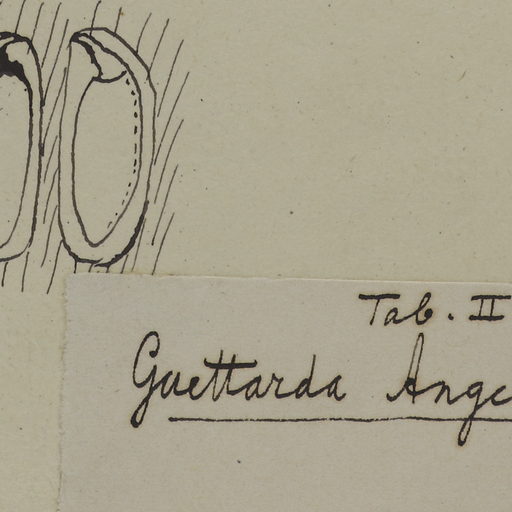 Tab. II
Guettarda Ange